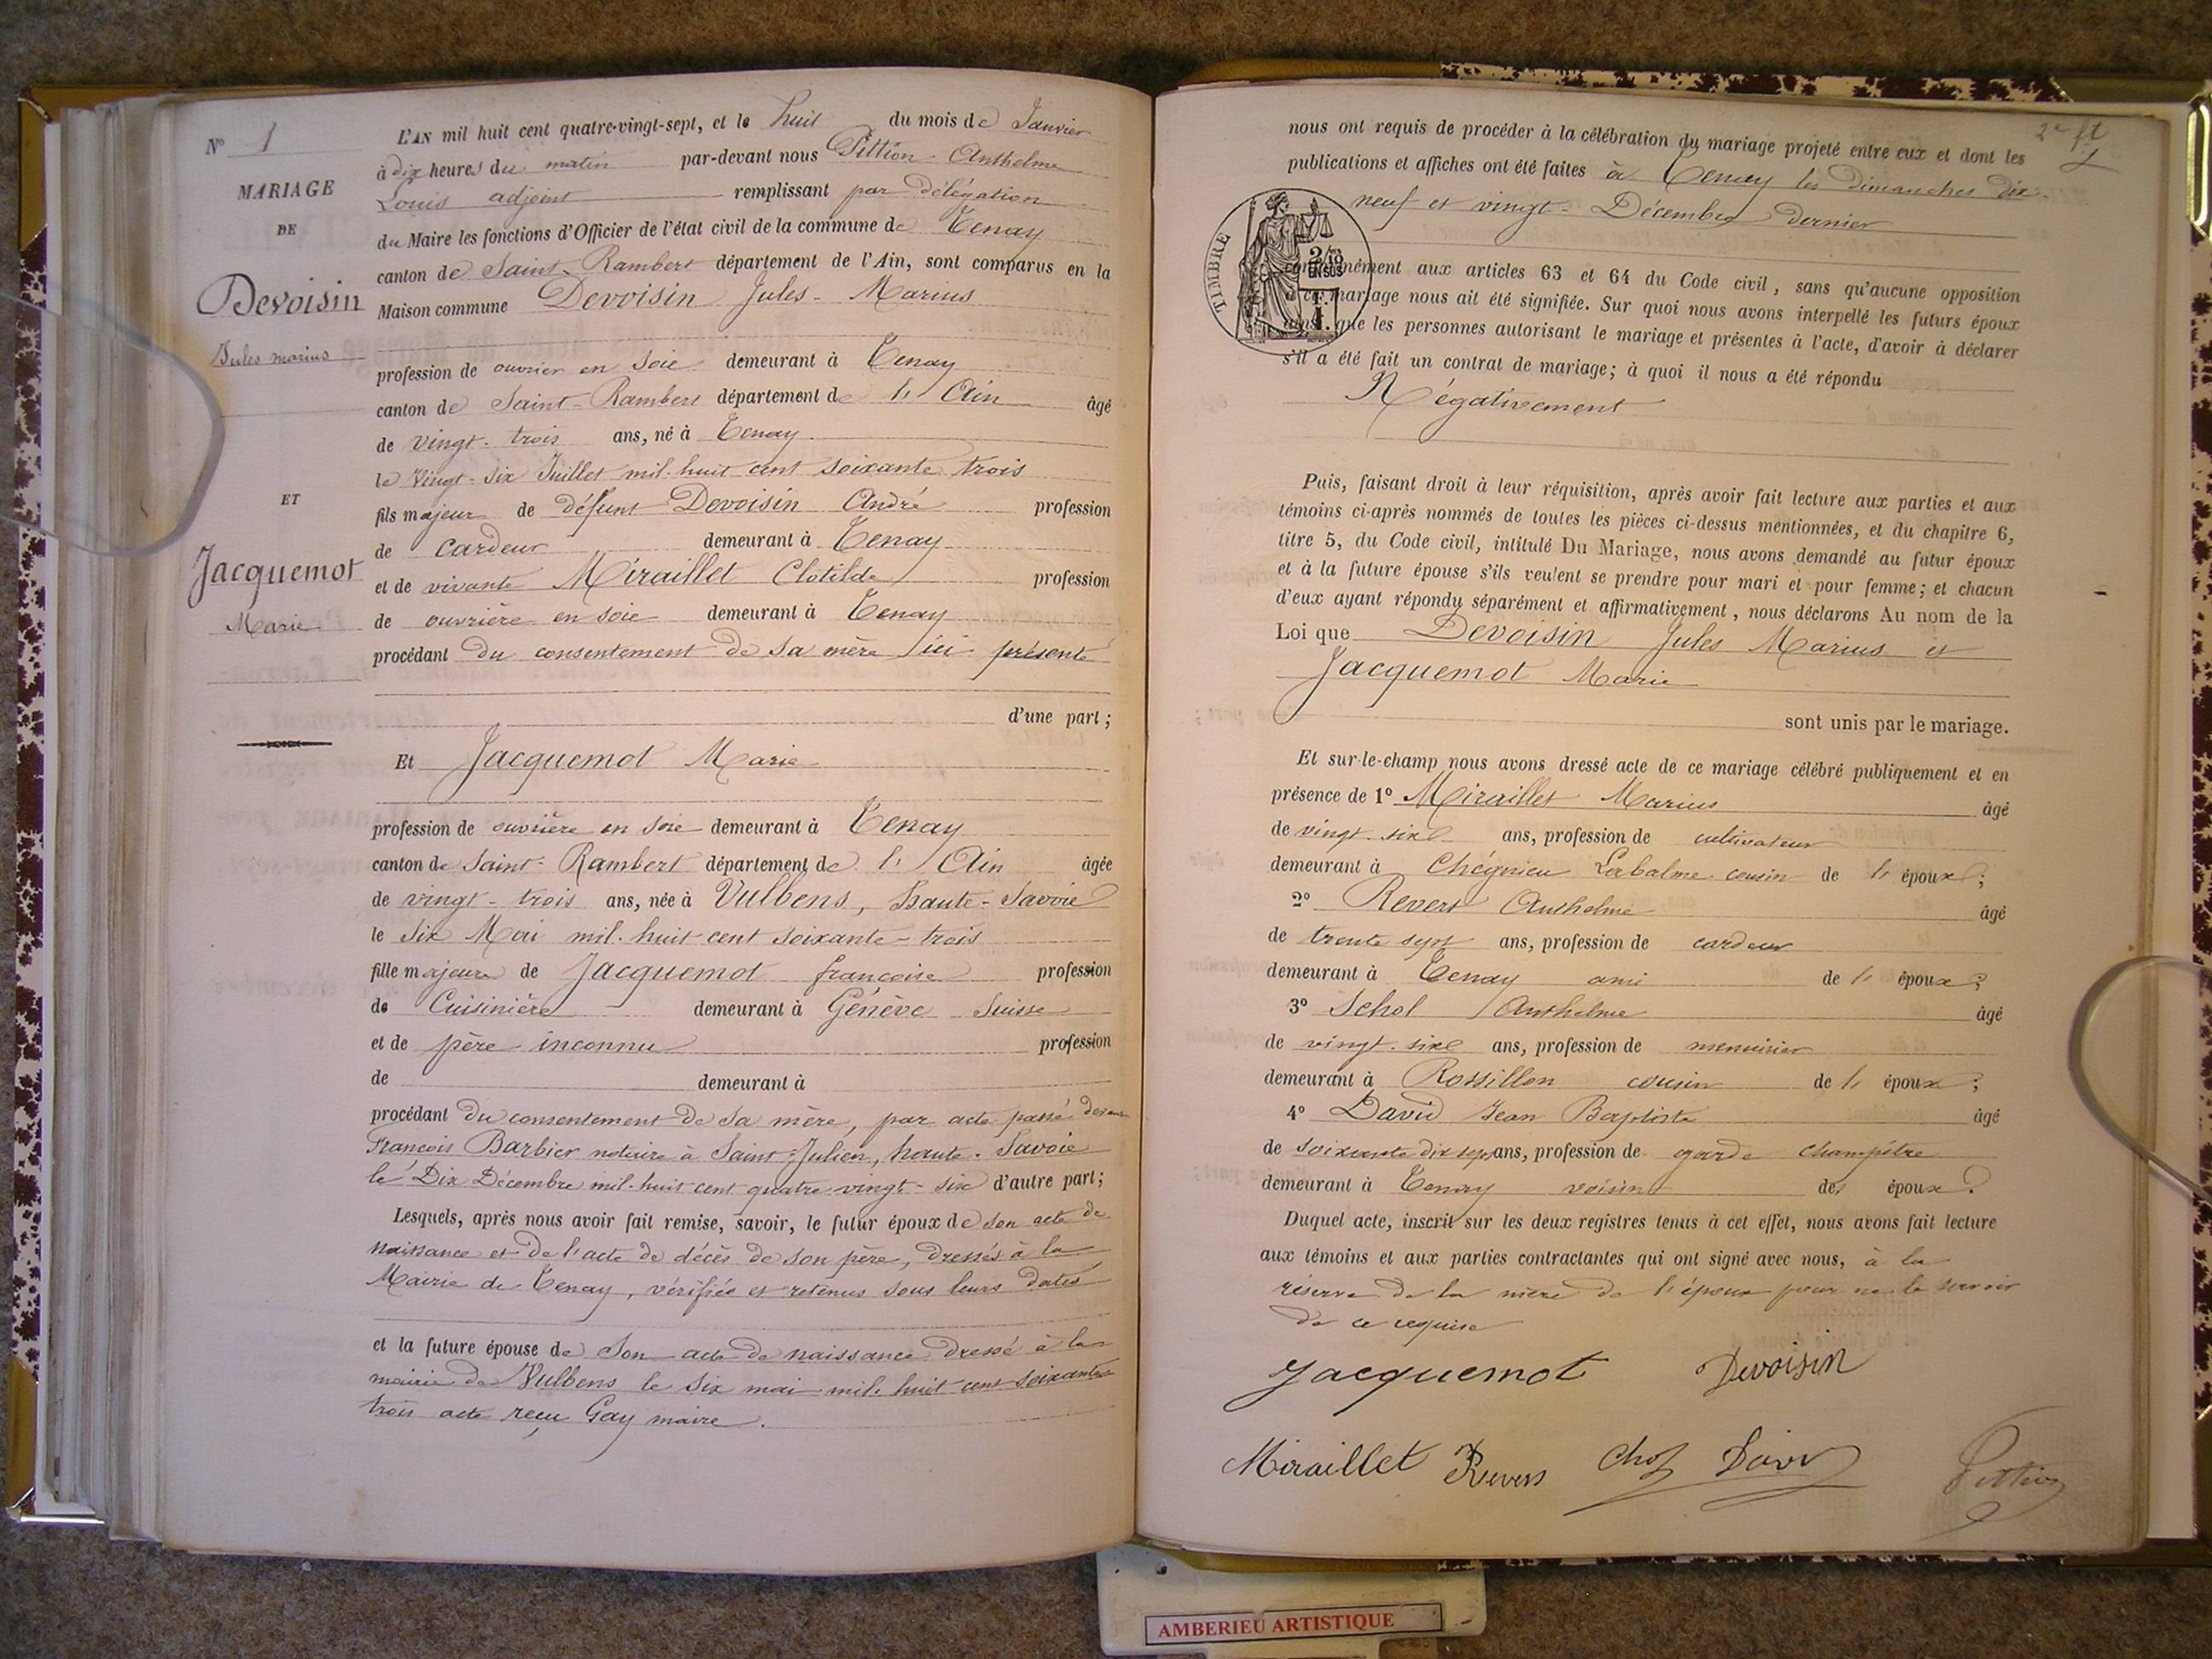 N° 1
MARIAGE
DE
Devoisin
Jules marius
ET
Jacquemot
Marie
L'AN mil huit cent quatre-vingt-sept, et le huit du mois de Janvier
à dix heures du matin par-devant nous Pittion Anthelme
Louis adjoint remplissant par délégation
du Maire les fonctions d'Officier de l'état civil de la commune de Tenay
canton de Saint-Rambert département de l'Ain, sont comparus en la
Maison commune Devoisin Jules-Marius
profession de ouvrier en soie demeurant à Tenay
canton de Saint-Rambert département de l'Ain âgé
de vingt-trois ans, né à Tenay
le vingt-six Juillet mil-huit cent soixante trois
fils majeur de défunt Devoisin André profession
de cardeur demeurant à Tenay
et de vivante Miraillet Clotilde profession
de ouvrière en soie demeurant à Tenay
procédant du consentement de sa mère ici présente
d'une part ;
Et Jacquemot Marie
profession de ouvrière en soie demeurant à Tenay
canton de Saint-Rambert département de l'Ain âgée
de vingt-trois ans, née à Vulbens, Haute-Savoie
le six Mai mil-huit cent soixante-trois
fille majeure de Jacquemot françoise profession
de Cuisinière demeurant à Génève Suisse
et de père inconnu profession
de demeurant à
procédant du consentement de sa mère, par acte passé devant
François Barbier notaire à Saint-Julien, haute-Savoie
le Dix Décembre mil-huit cent quatre-vingt-six d'autre part;
Lesquels, après nous avoir fait remise, savoir, le futur époux de son acte de
naissance et de l'acte de décès de son père, dressés à la
Mairie de Tenay, vérifiés et retenus sous leurs dates
et la future épouse de son acte de naissance dressé à la
mairie de Vulbens le six mai mil-huit cent soixante
trois acte reçu Gay maire.
2e ft
nous ont requis de procéder à la célébration du mariage projeté entre eux et dont les
publications et affiches ont été faites à Tenay les dimanches dix-
neuf et vingt- Décembre dernier
TIMBRE
2/10
EN SUS
conformément aux articles 63 et 64 du Code civil, sans qu'aucune opposition
à ce mariage nous ait été signifiée. Sur quoi nous avons interpellé les futurs époux
ainsi que les personnes autorisant le mariage et présentes à l'acte, d'avoir à déclarer
s'il a été fait un contrat de mariage; à quoi il nous a été répondu
Négativement
Puis, faisant droit à leur réquisition, après avoir fait lecture aux parties et aux
témoins ci-après nommés de toutes les pièces ci-dessus mentionnées, et du chapitre 6,
titre 5, du Code civil, intitulé Du Mariage, nous avons demandé au futur époux
et à la future épouse s'ils veulent se prendre pour mari et pour femme; et chacun
d'eux ayant répondu séparément et affirmativement, nous déclarons Au nom de la
Loi que Devoisin Jules Marius et
Jacquemot Marie
sont unis par le mariage.
Et sur-le-champ nous avons dressé acte de ce mariage célébré publiquement et en
présence de 1° Miraillet Marius âgé
de vingt-six ans, profession de cultivateur
demeurant à Chégnieu Labalme cousin de l'époux ;
2° Revert Anthelme âgé
de trente sept ans, profession de cardeur
demeurant à Tenay ami de l'époux ;
3° Schol Anthelme âgé
de vingt-six ans, profession de menuisier
demeurant à Rossillon cousin de l'époux ;
4° David Jean Baptiste âgé
de soixante dix sept ans, profession de garde champêtre
demeurant à Tenay voisin des époux.
Duquel acte, inscrit sur les deux registres tenus à cet effet, nous avons fait lecture
aux témoins et aux parties contractantes qui ont signé avec nous, à la
réserve de la mère de l'époux pour ne le savoir
de ce requise
Jacquemot Devoisin
Miraillet Revers Chol David Pittion
AMBERIEU ARTISTIQUE